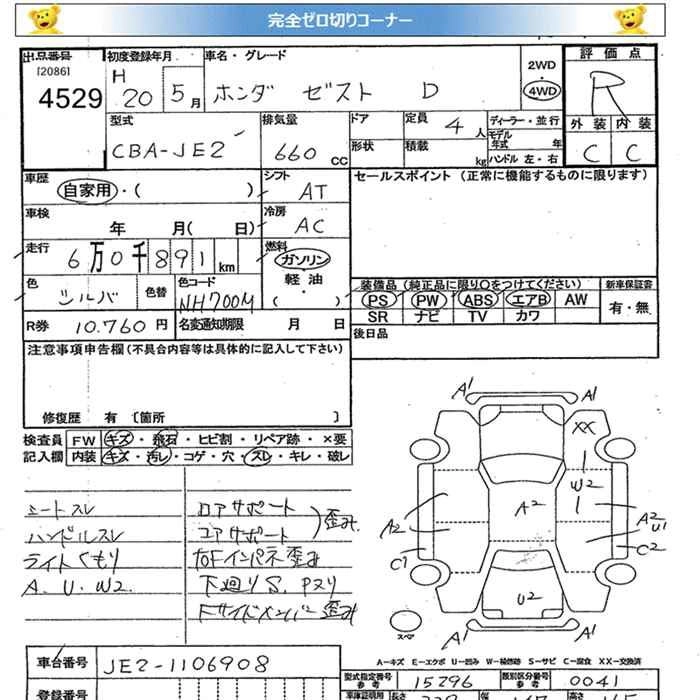 完全ゼロ切りコーナー
出品番号 初度登録年月 車名・グレード 2WD ・ 4WD 評価点
[2086] 4529 H 20 5月 ホンダ ゼスト D R
型式 排気量 ドア 定員 4人 ディーラー・並行 外装 内装
CBA-JE2 660 CC 形状 積載 kg モデル年式 年 C C
ハンドル 左・右
車歴 シフト セールスポイント (正常に機能するものに限ります)
自家用・( ) AT
車検 冷房
年 月( 日) AC
走行 燃料
6万0千891km ガソリン
軽油
( )
色 色替 色コード 装備品 (純正品に限り○をつけてください) 新車保証書
シルバ NH700M PS PW ABS エアB AW 有・無
SR ナビ TV カワ
R券 10.760円 名変通知期限 月 日 後日品
注意事項申告欄(不具合内容等は具体的に記入して下さい)
修復歴 有 〔箇所 〕
検査員 FW キズ・飛石・ヒビ割・リペア跡・×要
記入欄 内装 キズ・汚レ・コゲ・穴・スレ・キレ・破レ
シートスレ
ハンドルスレ
ライトくもり
A. U. W2.
コアサポート 歪み
下廻りS. Pヌリ
Fサイドメンバー歪み
A1 A1
XX
W2
A2
A2
A2 U1
C1 C2
U2
スペア
A1 A1
A-キズ E-エクボ U-凹み W-補修跡 S-サビ C-腐食 XX-交換済
車台番号 JE2-1106908
型式指定番号 参考 15296 類別区分番号 参考 0041
登録番号